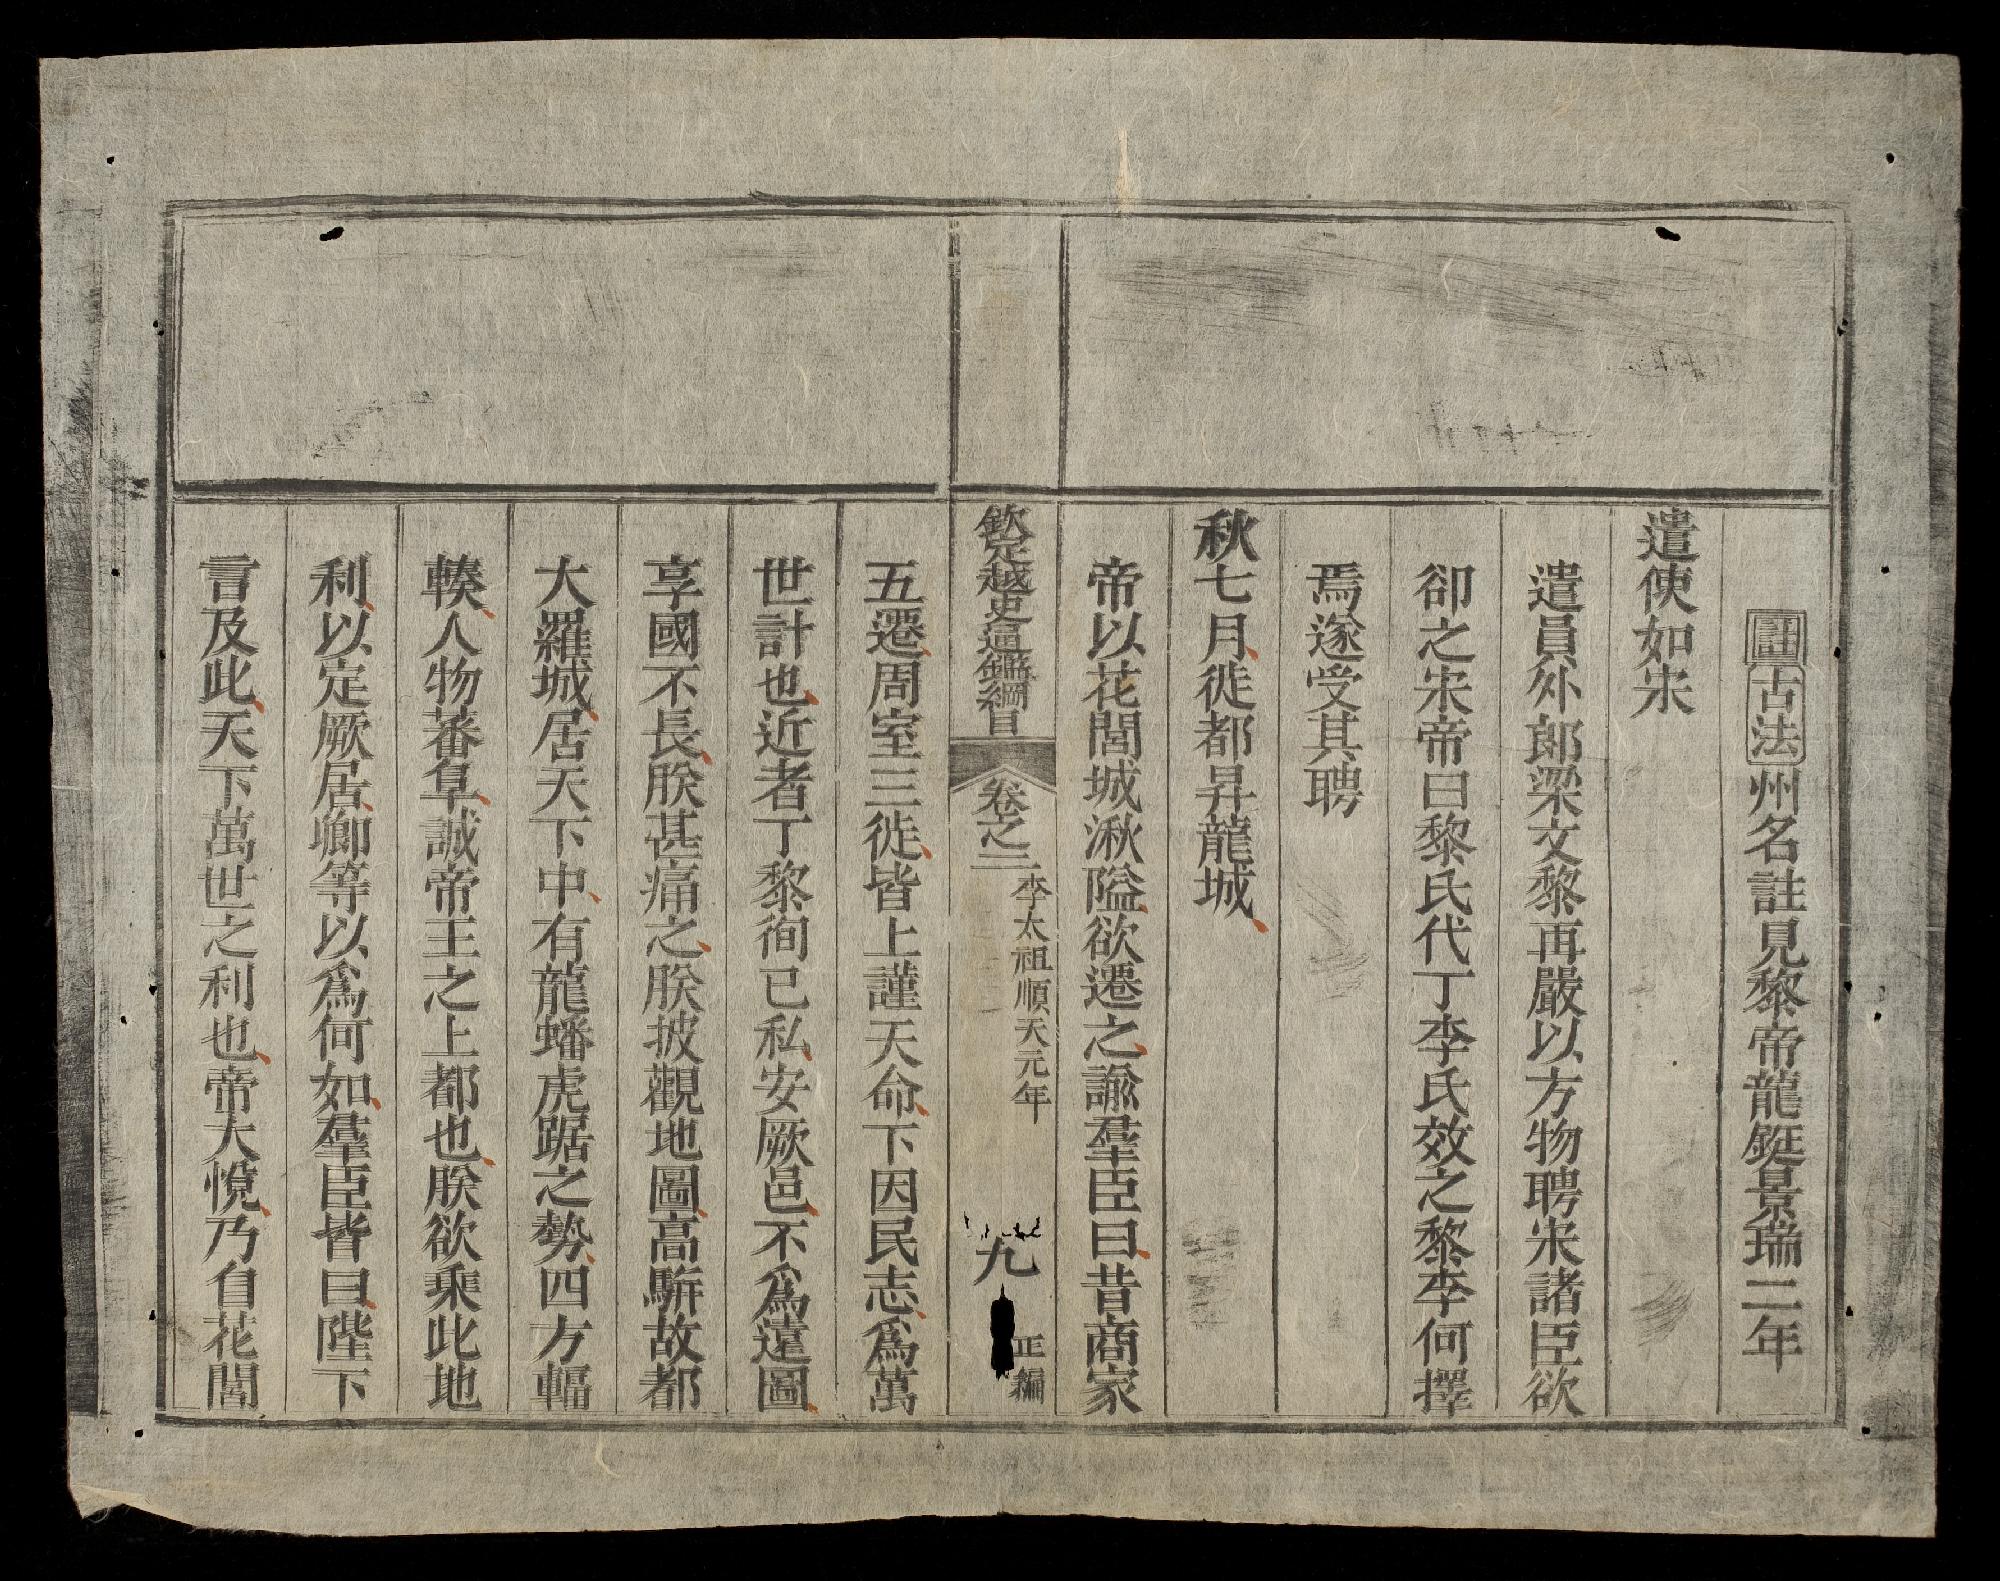 註古法州名註見黎帝龍鋌景瑞二年
遣使如宋
遣員外郎梁文黎再嚴以方物聘宋諸臣欲
卻之宋帝曰黎氏代丁李氏效之黎李何擇
焉遂受其聘
秋七月徙都昇龍城
帝以花閭城湫隘欲遷之諭羣臣曰昔商家
欽定越史通鑑綱目
卷之二
李太祖順天元年
九
正編
五遷周室三徙皆上謹天命下因民志爲萬
世計也近者丁黎徇己私安厥邑不爲遠圖
享國不長朕甚痛之朕披觀地圖高駢故都
大羅城居天下中有龍蟠虎踞之勢四方輻
輳人物蕃阜誠帝王之上都也朕欲乘此地
利以定厥居卿等以爲何如羣臣皆曰陛下
言及此天下萬世之利也帝大悅乃自花閭